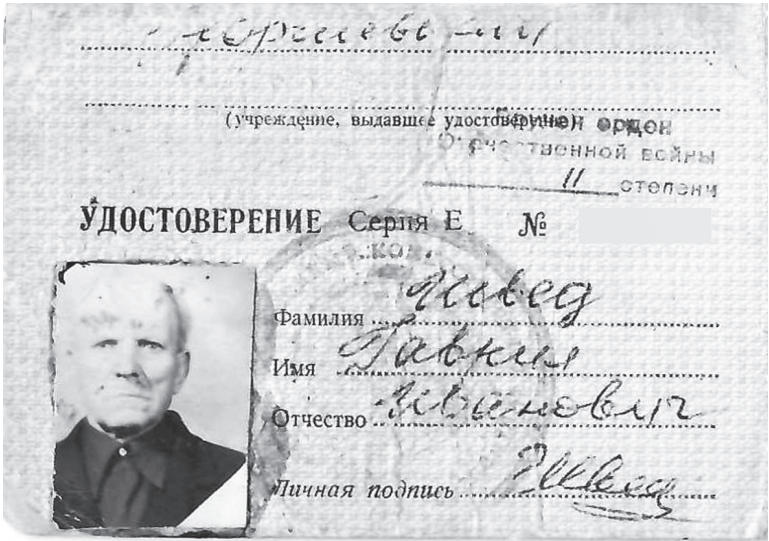 (учреждение, выдавшее удостоверение)
Вручен орден
Отечественной войны
II степени
УДОСТОВЕРЕНИЕ Серия Е №
Фамилия Швед
Имя
Отчество Иванович
Личная подпись Швед